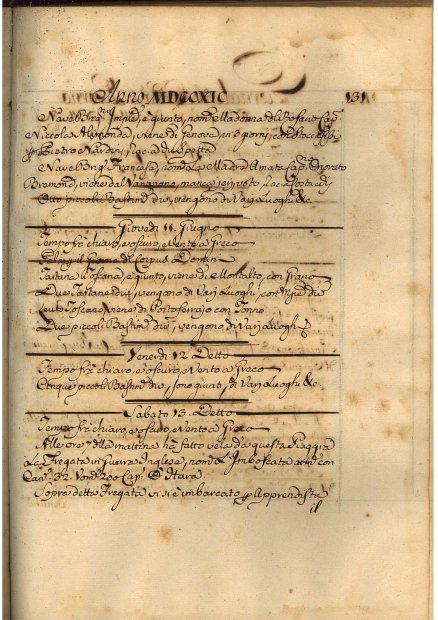 Anno MDCCXIC 131
Nave Inglese, e quinto, nom.ta Madonna del Rosario Cap.
Niccola Alimonda, viene di Genova, in 8 giorni, con
p Pietro Nardini, Rac. a di
Nave Francese, nom.ta La Madra Amata Cap. Onorato
Brumone, viene dal manca
Otto piccoli Bastim.ti div., vengono di Varj Luoghi &c.
Giovedi 11. Giugno
Tempo frà chiaro, e oscuro, e Vento a Greco
Corpus Domini
Tartana Toscana, e quinto, viene di Montalto, con Grano
Due Tartane div., vengono di Varj Luoghi, con div
Leuto Toscano, viene di Portoferrajo con Tonno
Due piccoli Bastim.ti div., vengono di Varj Luoghi &
Venerdi 12 Detto
Tempo frà chiaro, e oscuro, e Vento a Greco
Cinque piccoli Bastim.ti div., sono giunti, di Varj Luoghi &c.
Sabato 13. Detto
Tempo frà chiaro, e oscuro, e Vento a Greco
Alle ore della mattina hà fatto vela da questa Piaggia
La Fregata in Guerra Inglese, nom.ta L' Imboscata arm. con
Can. 32. Uom. 200 Cap. O Hara.
Sopra detta Fregata vi si è imbarcato p Apprendista
il